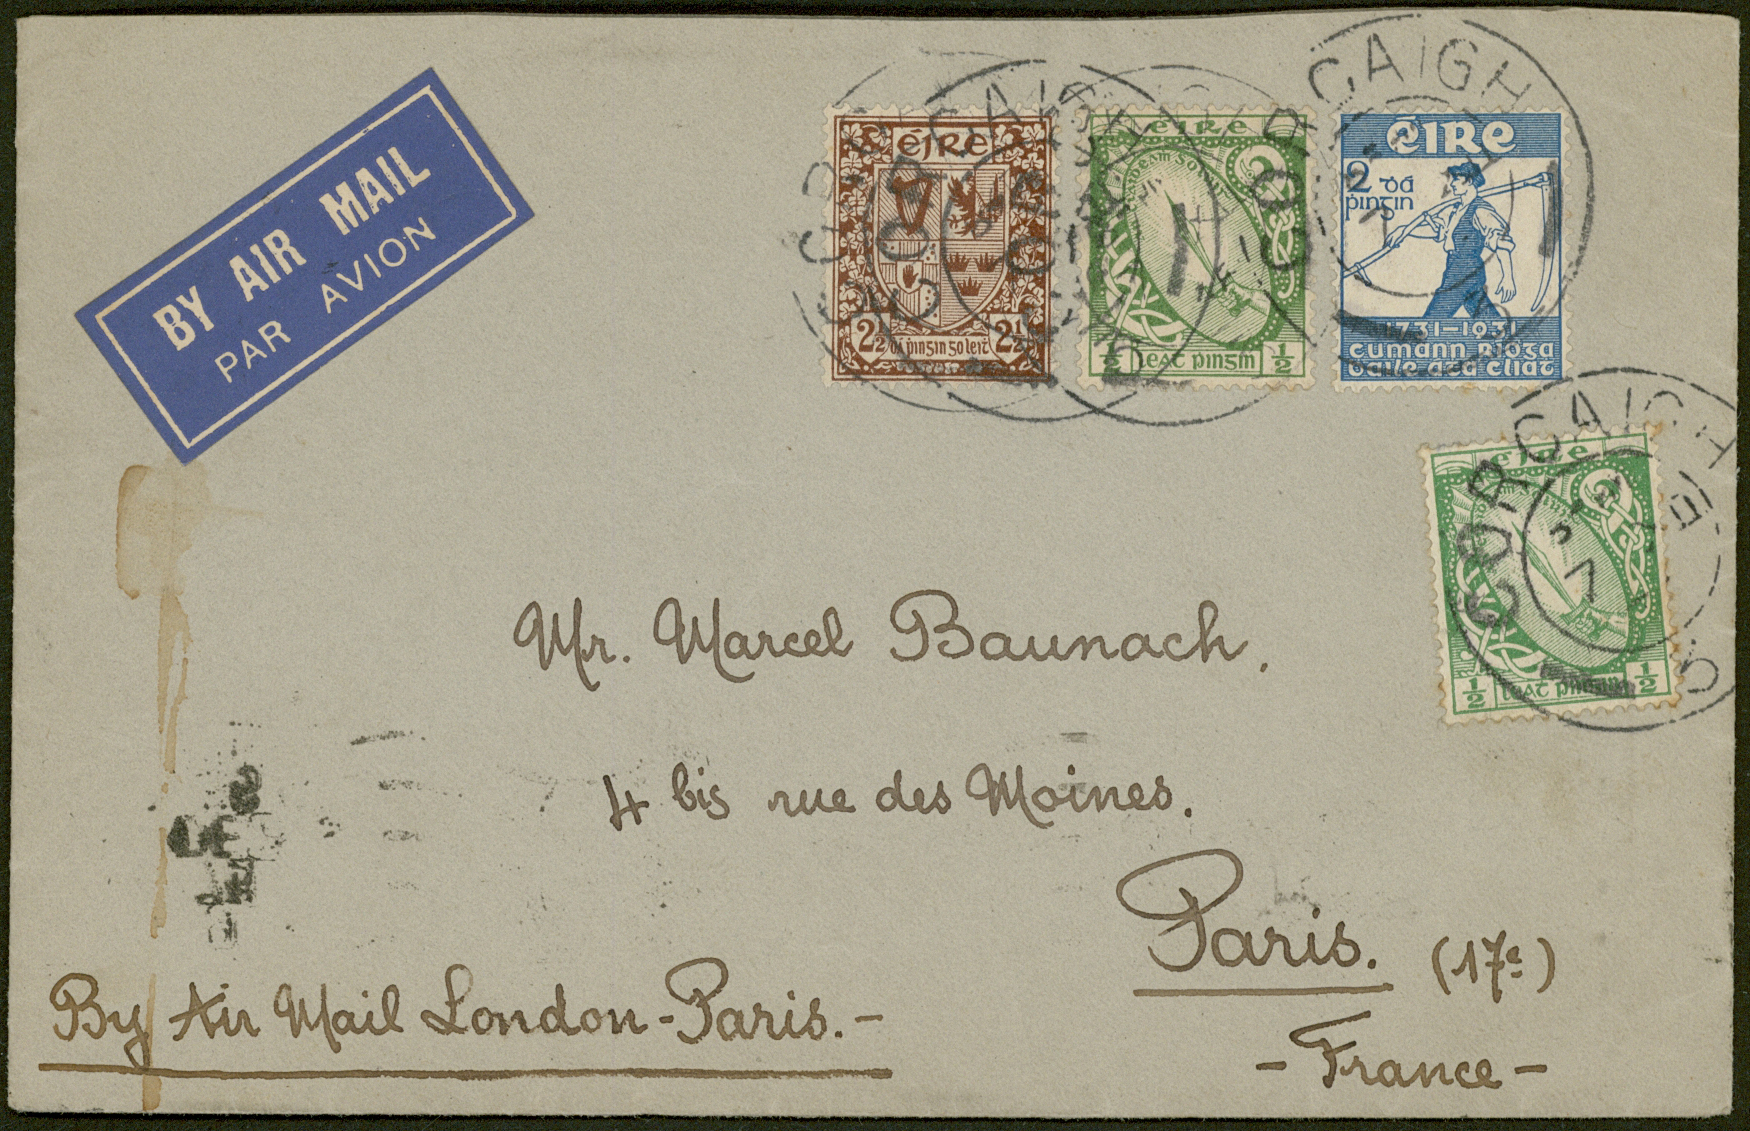 BY AIR MAIL
PAR AVION
éire
2½ dá pingin go leit 2½
éire
½ leat pingin ½
ÉIRE
2 dá
pingin
1731-1931
cumann ríoga
baile áta cliat
CORCAIGH
CORCAIGH
éire
½ leat pingin ½
CORCAIGH
7
Mr. Marcel Baunach,
4 bis rue des Moines.
Paris. (17e)
- France -
By Air Mail London-Paris. -